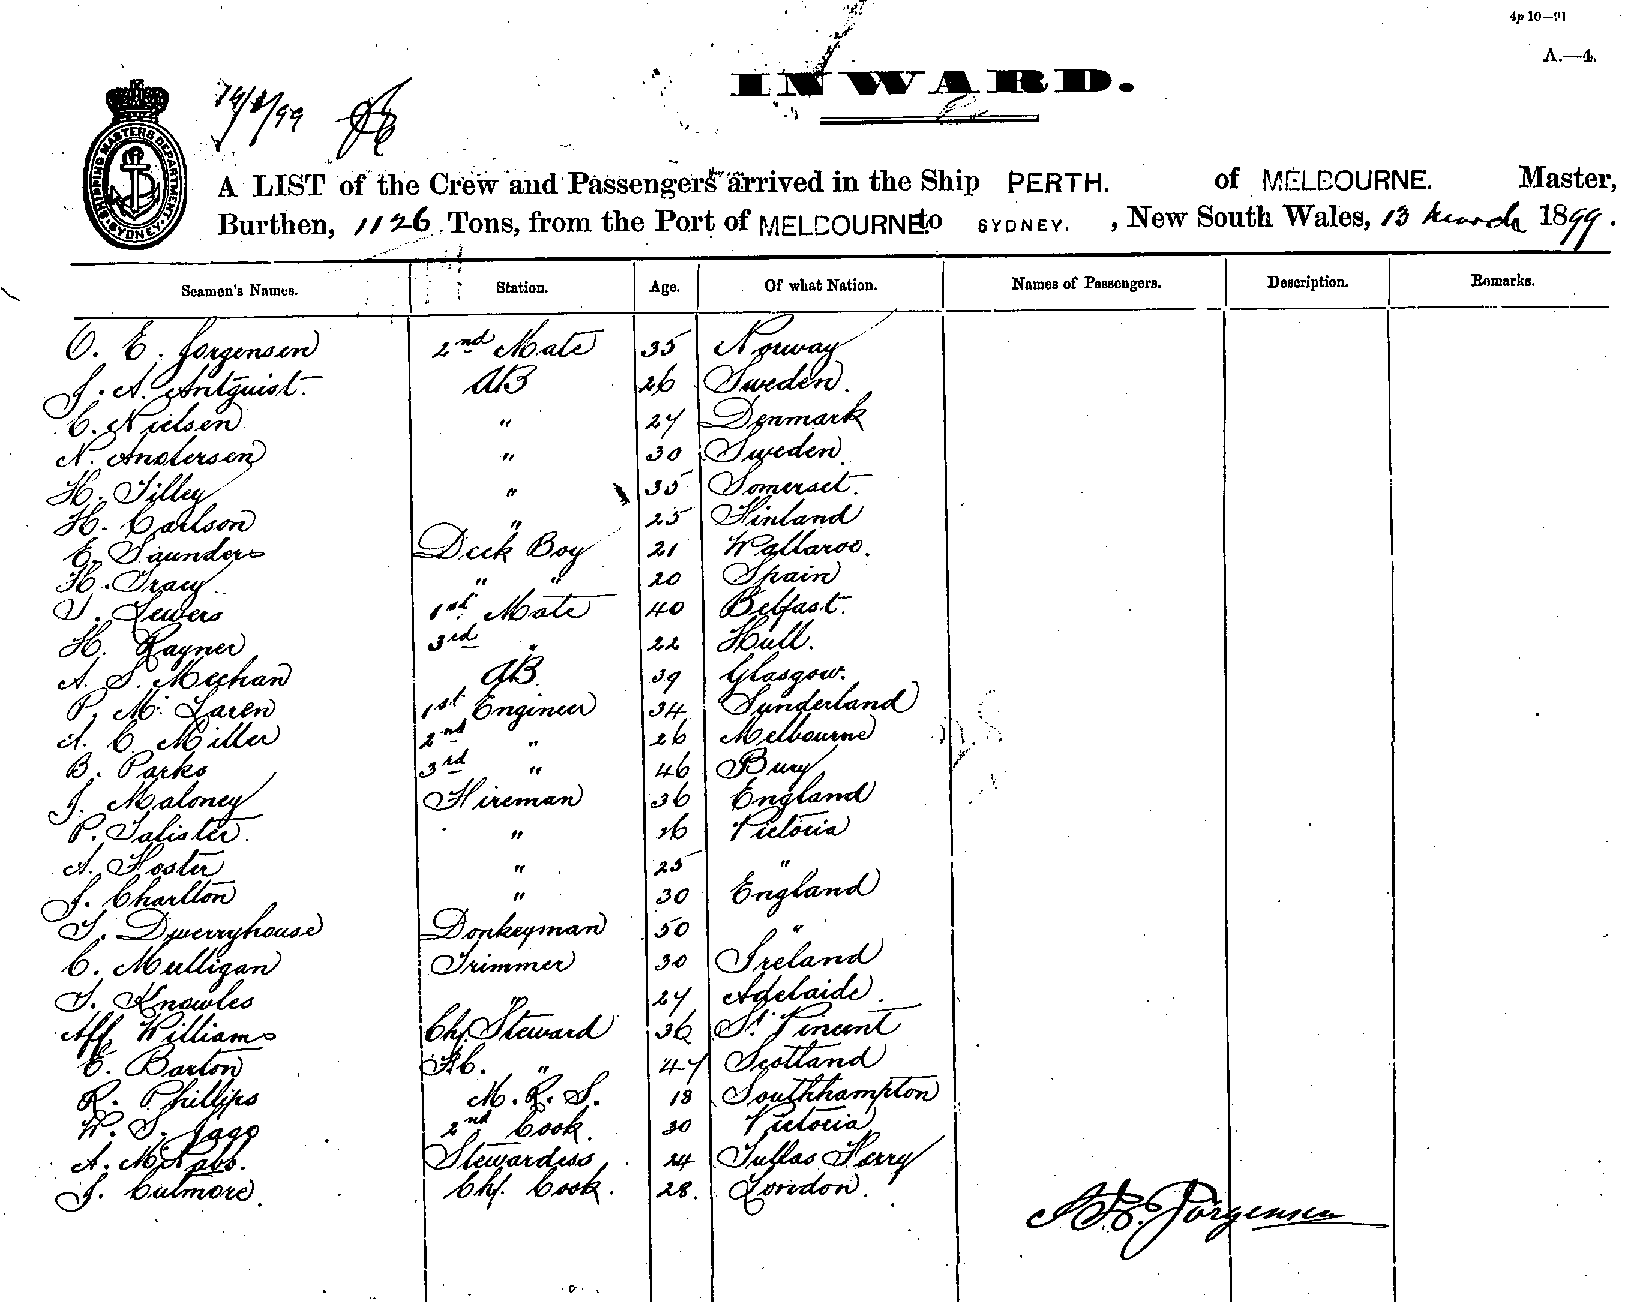 4p 10—91
A.—4.
INWARD.
14/3/99
SHIPPING MASTERS DEPARTMENT SYDNEY
A LIST of the Crew and Passengers arrived in the Ship PERTH. of MELBOURNE. Master,
Burthen, 1126 Tons, from the Port of MELBOURNE to SYDNEY. , New South Wales, 13 March 1899.
Seamen's Names. Station. Age. Of what Nation. Names of Passengers. Description. Remarks.
O. E. Jorgensen 2nd Mate 35 Norway
J. A. Antquist. AB 26 Sweden.
C. Nielsen " 27 Denmark
N. Andersen " 30 Sweden
H. Tilley " 35 Somerset.
H. Carlson " 25 Finland
E. Saunders Deck Boy 21 Wallaroo.
H. Tracy " " 20 Spain
T. Lewers 1st Mate 40 Belfast.
H. Rayner 3rd " 22 Hull.
A. S. Meehan AB 39 Glasgow.
P. Mc Laren 1st Engineer 34 Sunderland
A. C. Miller 2nd " 26 Melbourne
B. Parks 3rd " 46 Bury
J. Maloney Fireman 36 England
P. Talister. " 26 Victoria
A. Foster " 25 "
J. Charlton " 30 England
T. Dwerryhouse Donkeyman 50 "
C. Mulligan Trimmer 30 Ireland
T. Knowles " 27 Adelaide.
Alf Williams Chf Steward 36 St Vincent
E. Barton F.C. " 47 Scotland
R. Phillips M.R.S. 18 Southhampton
W. S. Jago 2nd Cook. 30 Victoria
A. Stewardess 24 Ferry
J. Culmore. Chf. Cook. 28. London.
Jorgensen